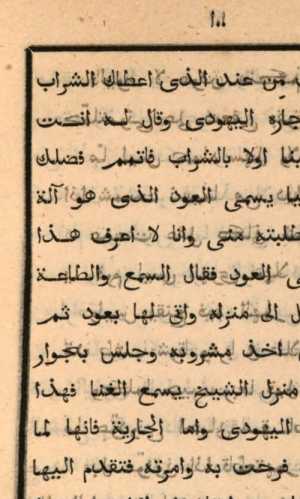 ١٠١
من عند الذى اعطاك الشراب
جاره اليهودى وقال له انت
اولا بالشراب فاتمم فضلك
يسمى العود الذى هو آلة
طلبته منى وانا لا اعرف هذا
العود فقال السمع والطاعة
الى منزله واتى لها بعود ثم
اخذ مشروبه وجلس بجوار
منزل الشيخ يسمع الغنا فهذا
اليهودى واما الجارية فانها لما
فرحت به وامرته فتقدم اليها